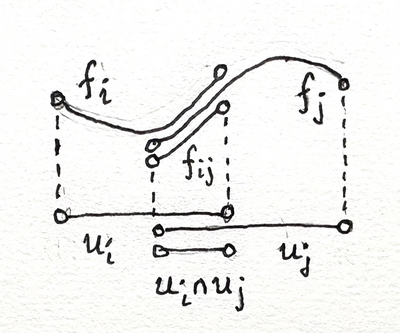 f_i
f_j
f_ij
u_i
u_j
u_i ∩ u_j